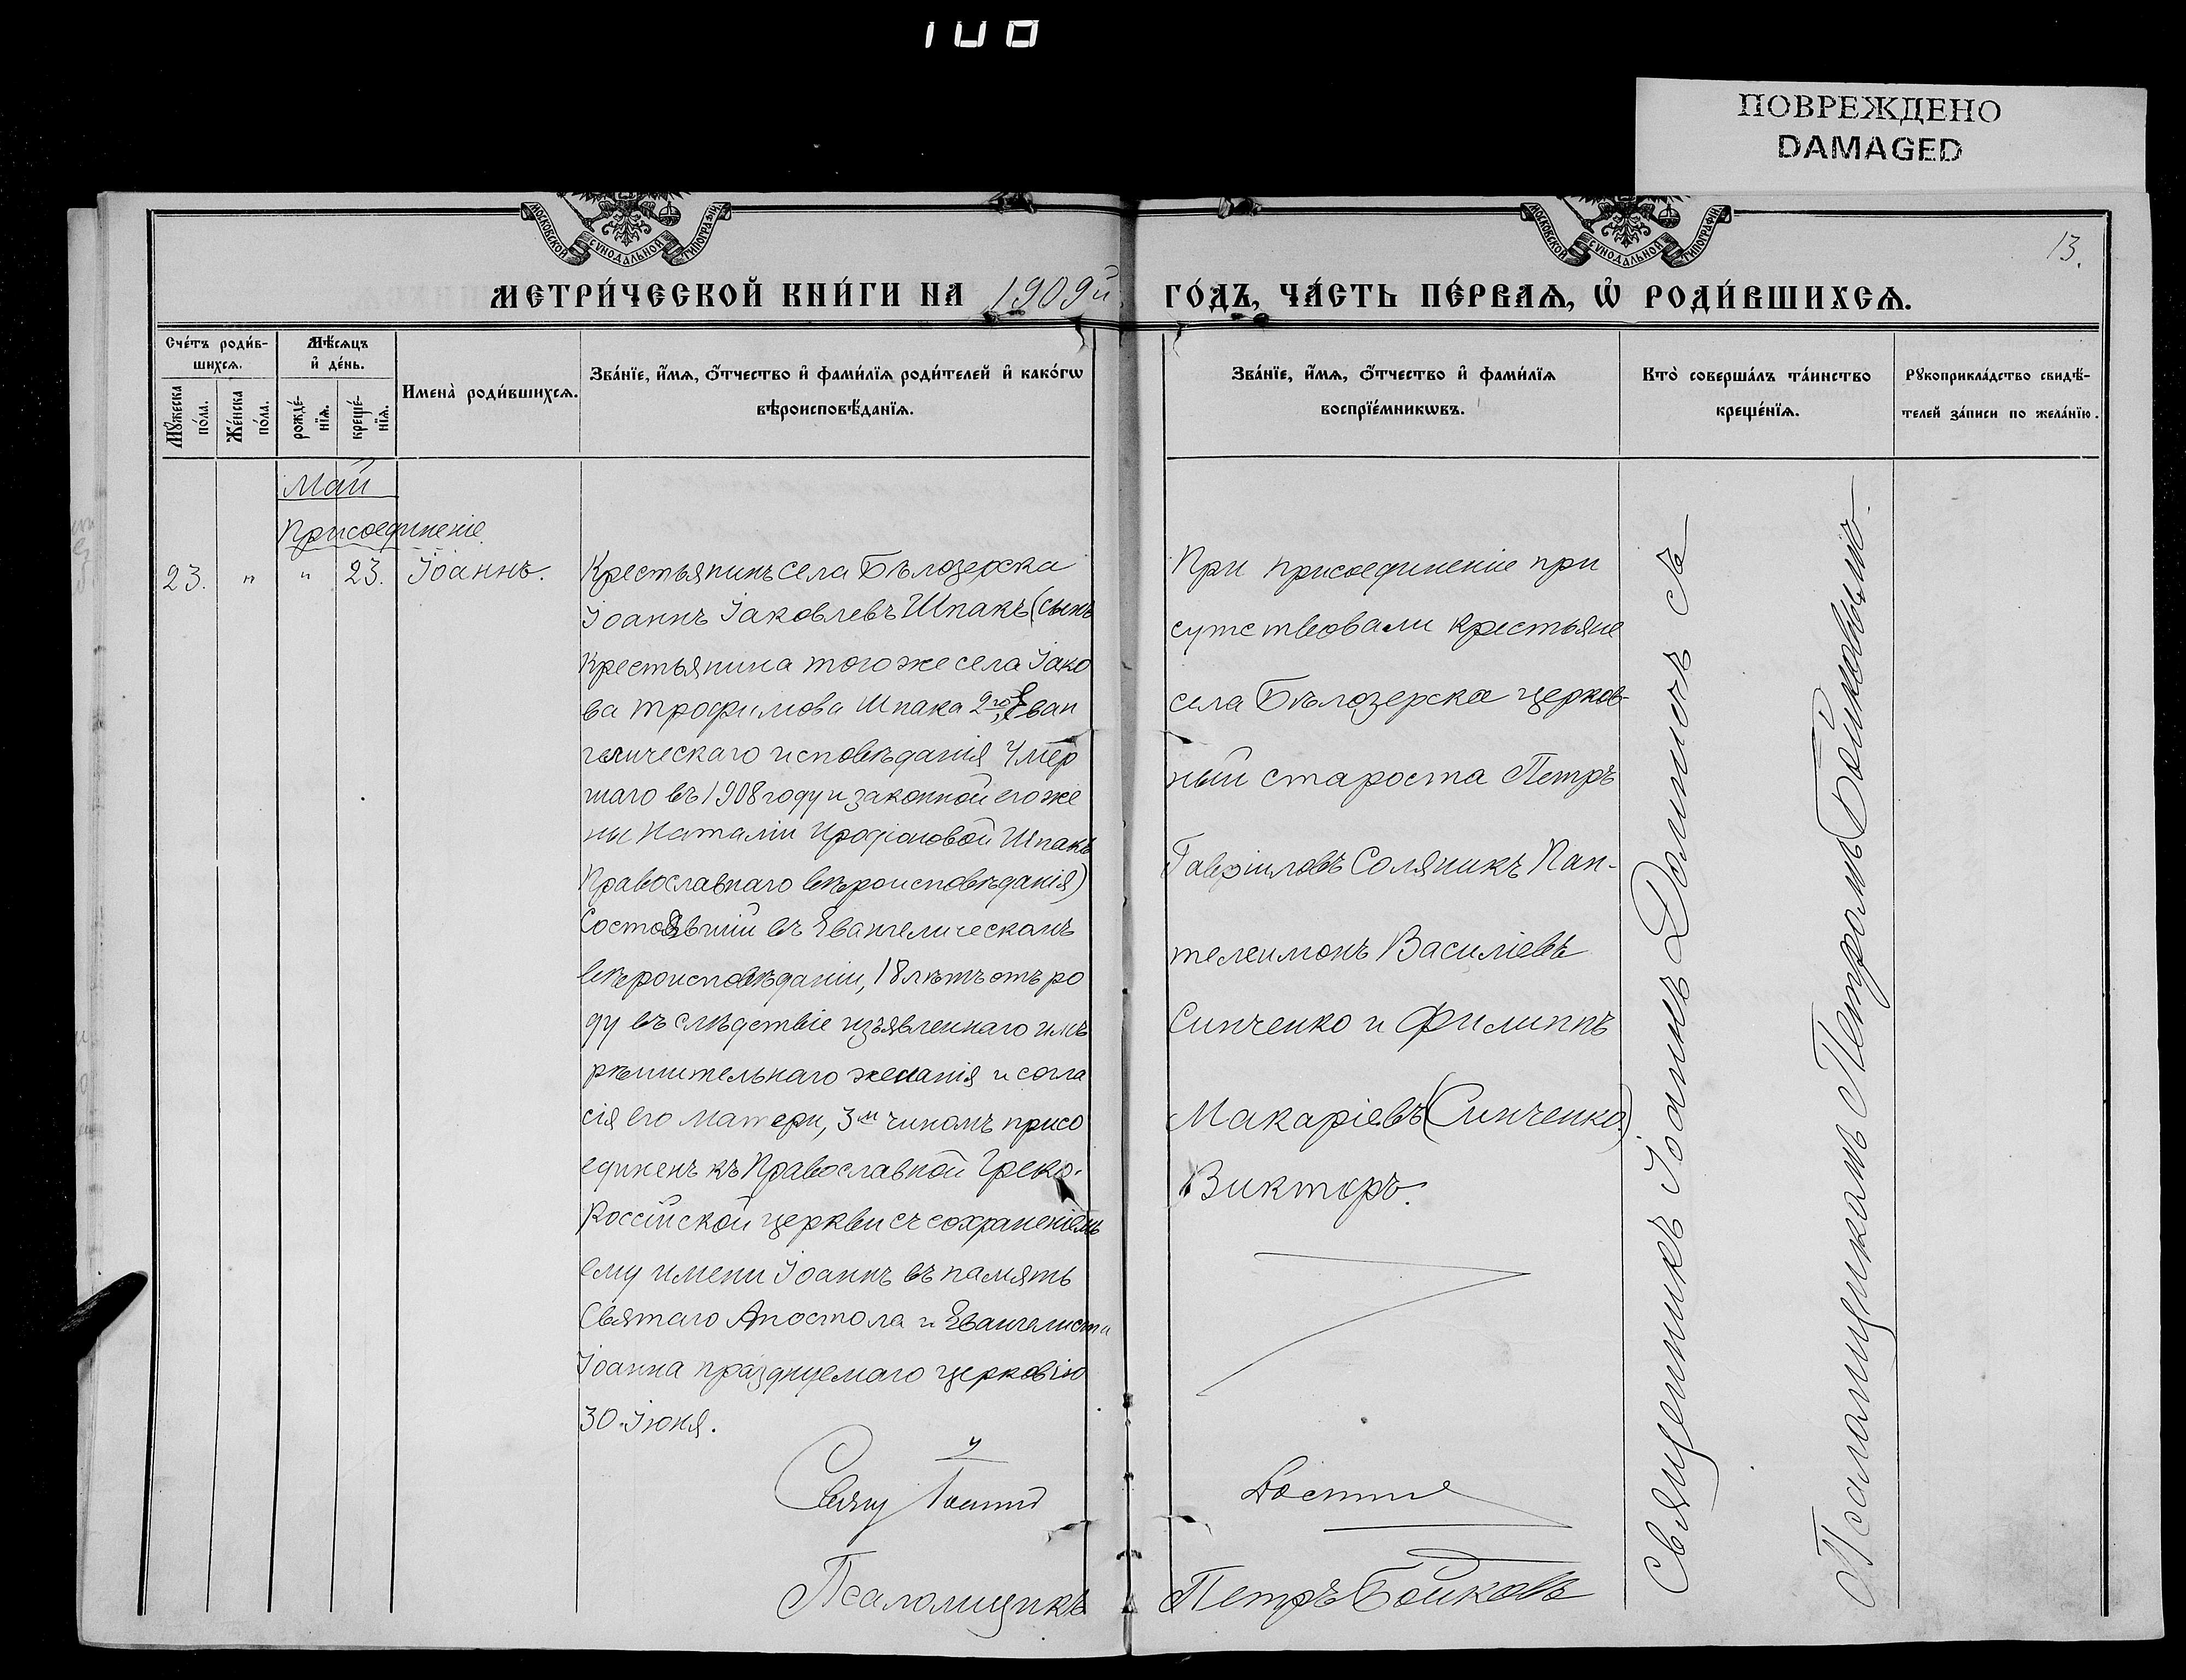 108
ПОВРЕЖДЕНО
DAMAGED
МОСКОВСКОЙ СѴНОДАЛЬНОЙ ТИПОГРАФІИ
МОСКОВСКОЙ СѴНОДАЛЬНОЙ ТИПОГРАФІИ
13.
МЕТРИ́ЧЕСКОЙ КНИ́ГИ НА 1909й ГО́ДЪ, ЧА́СТЬ ПЕ́РВАѦ, Ѡ҆ РОДИ́ВШИХСѦ.
Сче́тъ роди́в-
шихсѧ.
Мꙋ́жеска по́ла.
Же́нска по́ла.
Мѣ́сѧцъ
и҆ де́нь.
рожде́-
нїѧ.
креще́-
нїѧ.
Имена̀ роди́вшихсѧ.
Зва́нїе, и҆́мѧ, ѻ҆́тчество и҆ фами́лїѧ роди́телей и҆ како́гѡ
вѣроисповѣ́данїѧ.
Зва́нїе, и҆́мѧ, ѻ҆́тчество и҆ фами́лїѧ
воспрїе́мникѡвъ.
Кто̀ соверша́лъ та́инство
креще́нїѧ.
Рꙋкоприкла́дство свидѣ́-
телей за́писи по жела́нїю.
Май
Присоединеніе.
23. " " 23. Іоаннъ.
Крестьянинъ села Бѣлозерска
Іоаннъ Іаковлевъ Шпакъ (сынъ
крестьянина того же села Іако
ва Трофимова Шпака 2го, Еван
гелическаго исповѣданія умер
шаго въ 1908 году и законной его же
ны Наталіи Иродіоновой Шпакъ
Православнаго вѣроисповѣданія)
Состоявшій въ Евангелическомъ
вѣроисповѣданіи, 18 лѣтъ отъ ро
ду въ слѣдствіе изъявленнаго имъ
рѣшительнаго желанія и согла
сія его матери, 3м чиномъ присо
единенъ къ Православной Греко-
Россійской церкви съ сохраненіемъ
ему имени Іоаннъ въ память
Святаго Апостола и Евангелиста
Іоанна празднуемаго церковію
30. Іюня.
Свящ Іоаннъ
Псаломщикъ
При присоединеніе при
сутствовали крестьяне
села Бѣлозерска церков-
ный староста Петръ
Гавріиловъ Соляникъ Пан-
телеимонъ Василіевъ
Синченко и Филиппъ
Макаріевъ (Синченко)
Викторъ.
Петръ Бойковъ
Священникъ Іоаннъ съ
Псаломщикомъ Петромъ Бойковымъ.